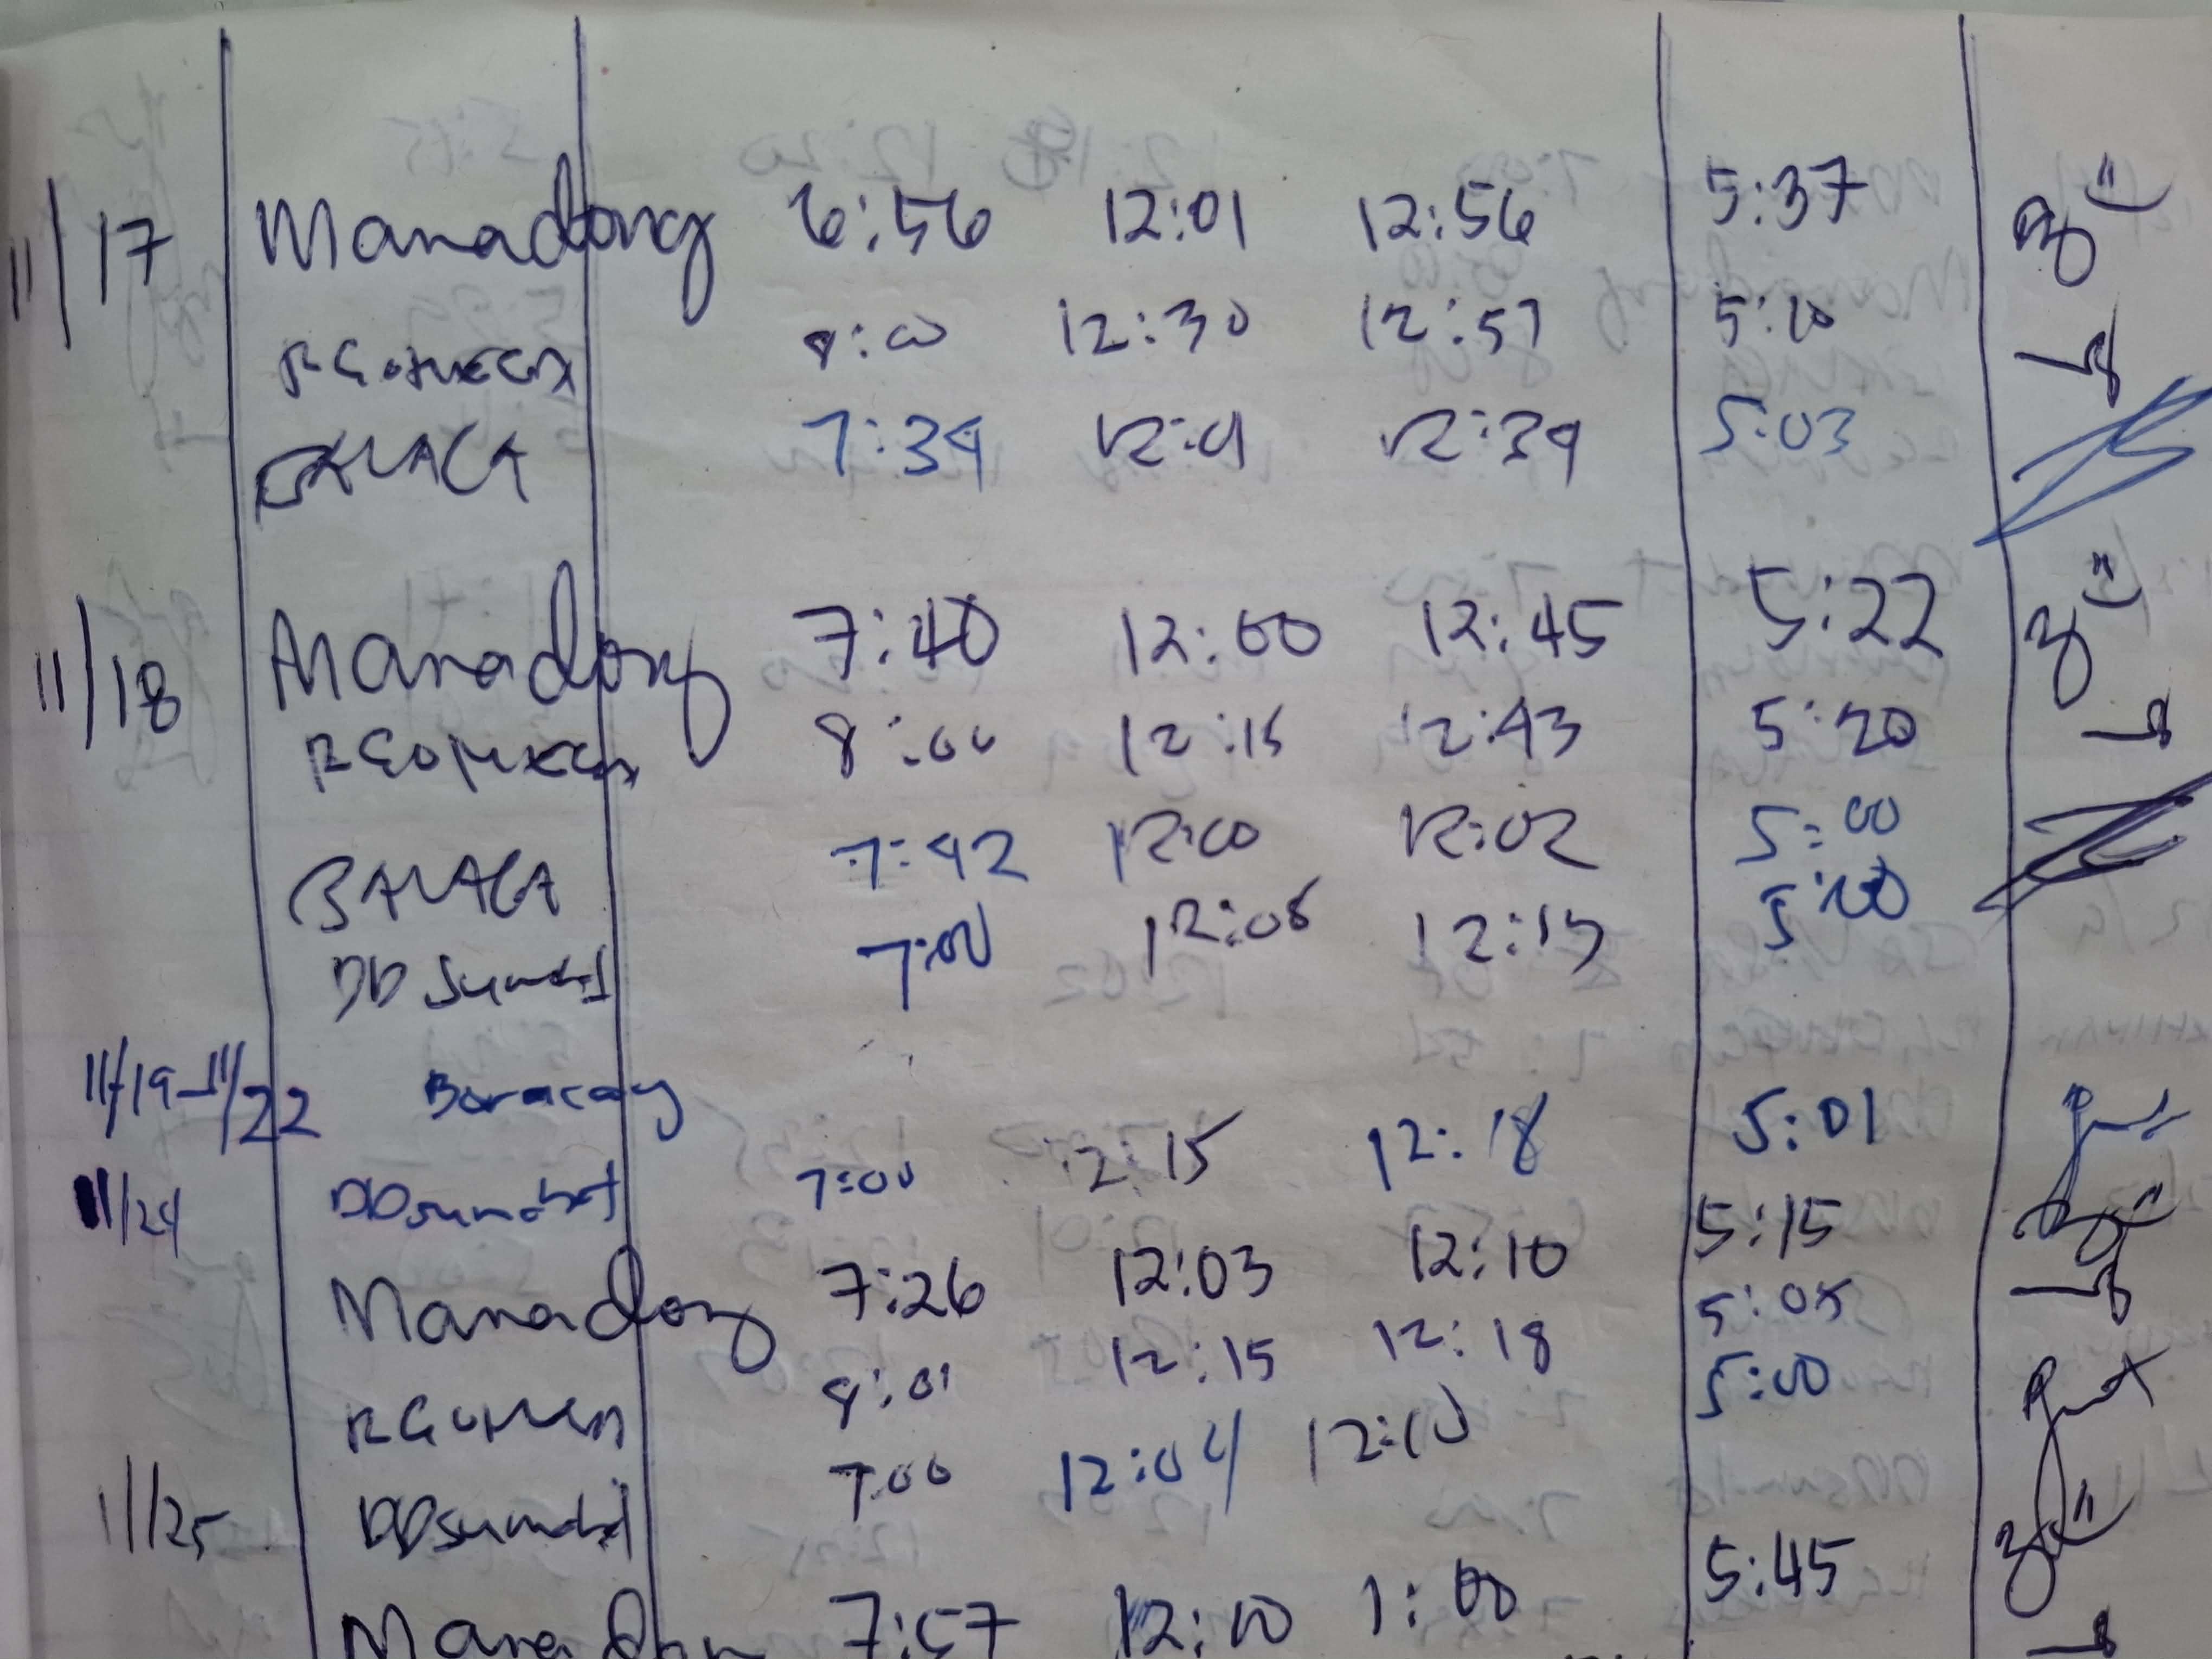 11/17 Manadong 6:56 12:01 12:56 5:37
RGOMEZ 8:00 12:30 12:57 5:10
BALAGA 7:34 12:01 12:39 5:03
11/18 Manadong 7:40 12:00 12:45 5:22
RGOMEZ 8:00 12:15 12:43 5:20
BALAGA 7:42 12:00 12:02 5:00
DD 7:00 12:08 12:15 5:00
11/19-11/22 Boracay
11/24 DD 7:00 12:15 12:18 5:01
Manadong 7:26 12:03 12:10 5:15
8:01 12:15 12:18 5:05
11/25 DD 7:00 12:04 12:10 5:00
7:57 12:10 1:00 5:45